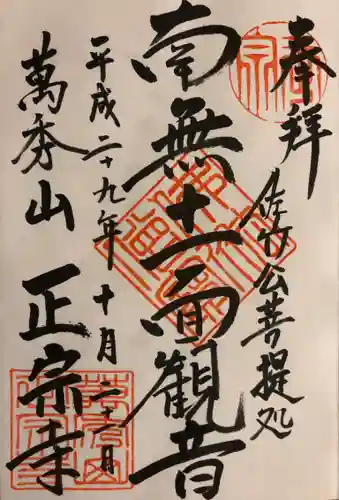 奉拝
佐竹公菩提処
南無十一面観音
平成二十九年 十月 二十二日
萬秀山 正宗寺